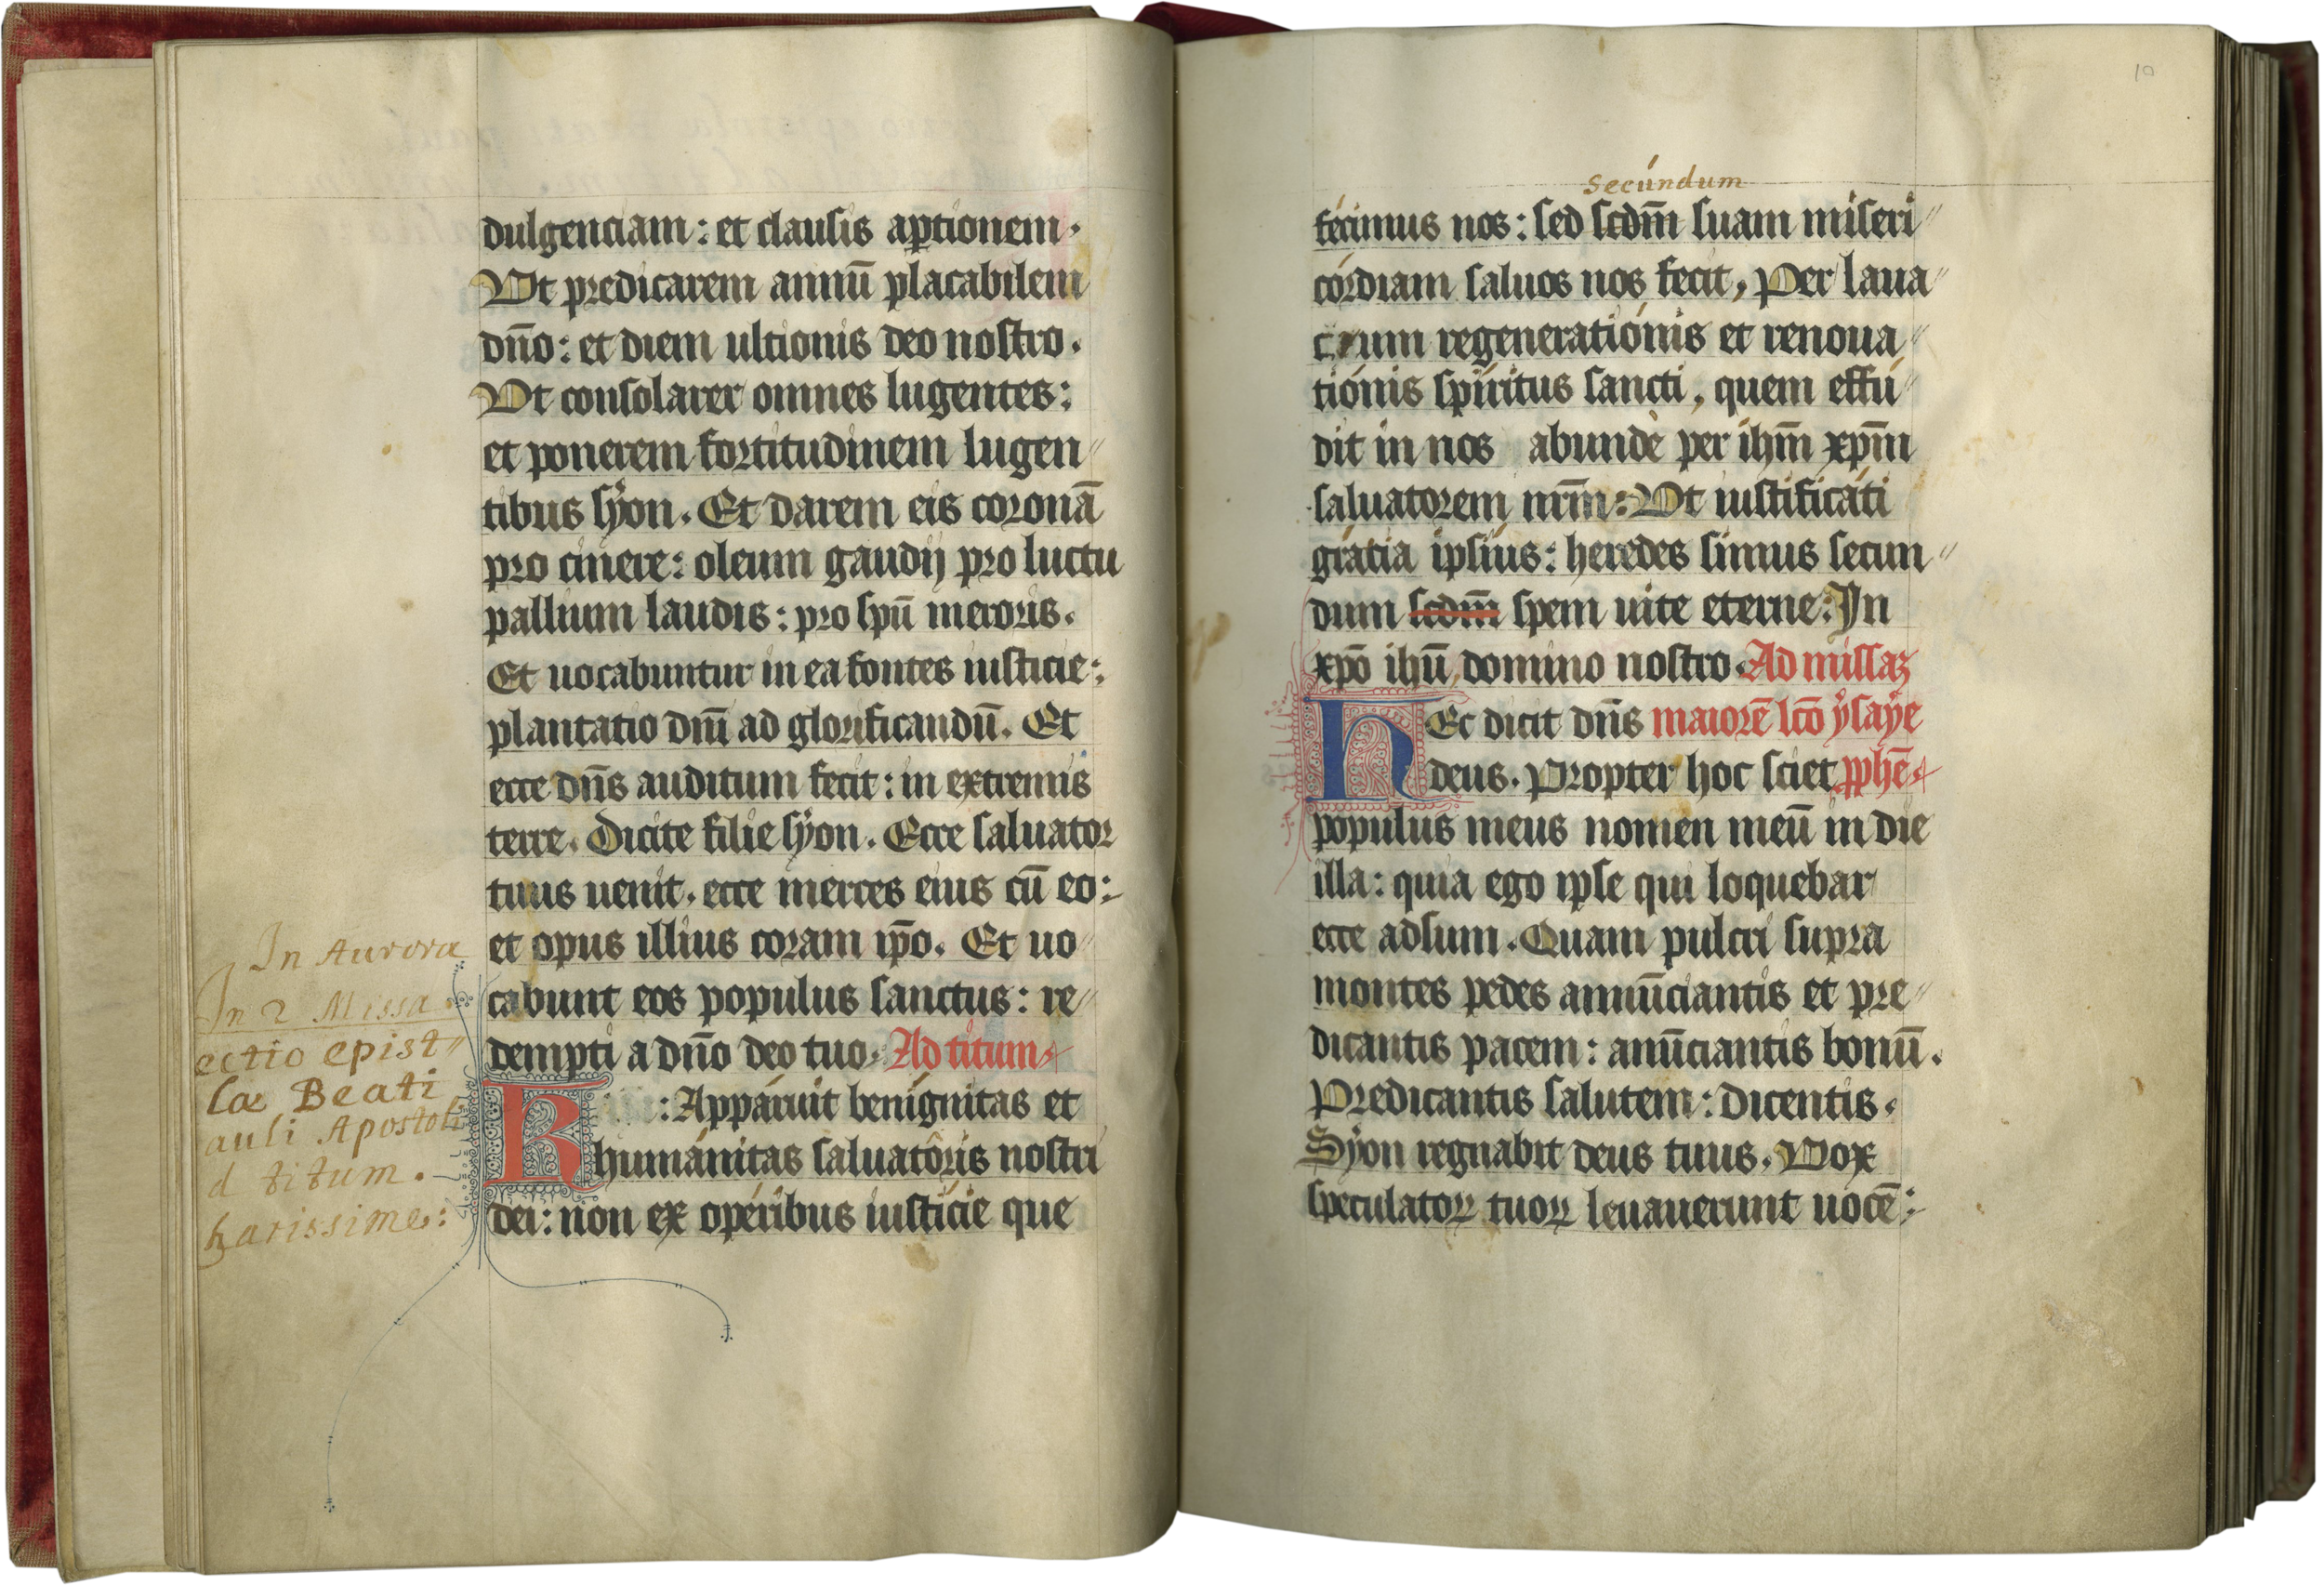 dulgenciam : et clausis aptionem.
Vt predicarem annū placabilem
dn̄o : et diem ultionis deo nostro.
Vt consolarer omnes lugentes :
et ponerem fortitudinem lugen〃
tibus sÿon. Et darem eis coronā
pro cinere : oleum gaudij pro luctu
pallium laudis : pro spū meroris.
Et uocabuntur in ea fontes iusticie :
plantatio dnī ad glorificandū. Et
ecce dn̄s auditum fecit : in extremis
terre. Dicite filie sÿon. Ecce saluator
tuus uenit. ecce merces eius cū eo :
et opus illius coram ip̄o. Et uo〃
cabunt eos populus sanctus : re〃
dempti a dn̄o deo tuo. Ad titum
In Aurora
In 2 Missa.
ectio epist〃
læ Beati
auli Apostoli
d titum.
harissime :
K : Appáruit benígnitas et
humánitas saluatôris nostri
dei : non ex opéribus iustície que
10
secúndum
fécimus nos : sed scdm̄ suam miseri〃
córdiam saluos nos fecit, Per laua〃
crum regeneratiónis et renoua〃
tiónis spíritus sancti, quem effú〃
dit in nos abundè per ihm̄ xpm̄
saluatorem nrm̄ : Vt iustificáti
grátia ipsíus : heredes simus secun〃
dum scdm̄ spem uite eterne : In
xpō ihū domino nostro. Ad missaȝ
HEc dicit dn̄s maiorē lcō ẏsaẏe
deus. Propter hoc sciet pphē.
populus meus nomen meū in die
illa : quia ego ipse qui loquebar
ecce adsum. Quam pulcri supra
montes pedes annūciantis et pre〃
dicantis pacem : anūciantis bonū.
Predicantis salutem : dicentis.
Sÿon regnabit deus tuus. Vox
speculatoꝝ tuoꝝ leuauerunt uocē :